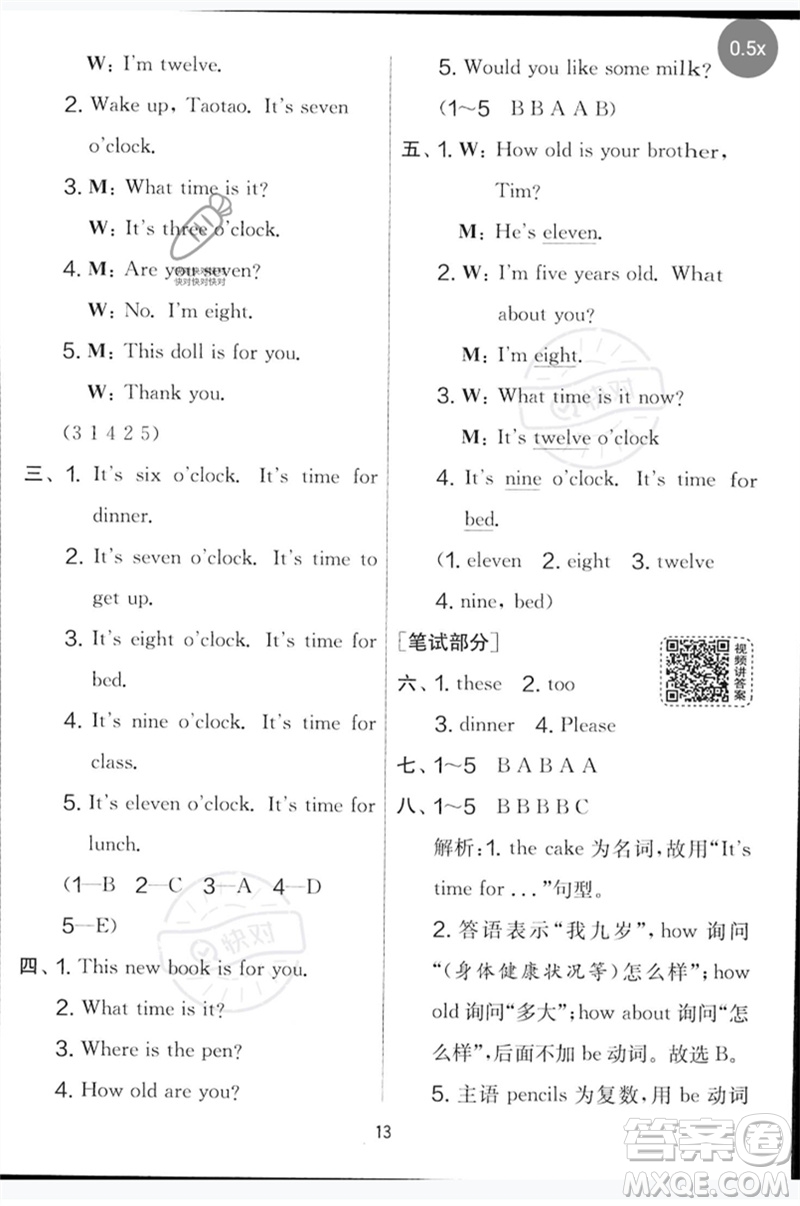 0.5x
W: I'm twelve.
2. Wake up, Taotao. It's seven
o'clock.
3. M: What time is it?
W: It's three o'clock.
4. M: Are you seven?
W: No. I'm eight.
5. M: This doll is for you.
W: Thank you.
(3 1 4 2 5)
三、1. It's six o'clock. It's time for
dinner.
2. It's seven o'clock. It's time to
get up.
3. It's eight o'clock. It's time for
bed.
4. It's nine o'clock. It's time for
class.
5. It's eleven o'clock. It's time for
lunch.
(1—B 2—C 3—A 4—D
5—E)
四、1. This new book is for you.
2. What time is it?
3. Where is the pen?
4. How old are you?
5. Would you like some milk?
(1~5 B B A A B)
五、1. W: How old is your brother,
Tim?
M: He's eleven.
2. W: I'm five years old. What
about you?
M: I'm eight.
3. W: What time is it now?
M: It's twelve o'clock
4. It's nine o'clock. It's time for
bed.
(1. eleven 2. eight 3. twelve
4. nine, bed)
[笔试部分]
视频讲答案
六、1. these 2. too
3. dinner 4. Please
七、1~5 B A B A A
八、1~5 B B B B C
解析:1. the cake 为名词，故用“It's
time for ...”句型。
2. 答语表示“我九岁”，how 询问
“（身体健康状况等）怎么样”；how
old 询问“多大”；how about 询问“怎
么样”，后面不加 be 动词。故选 B。
5. 主语 pencils 为复数，用 be 动词
13
快对快对快对
快对
快对
答案卷
MXQE.COM